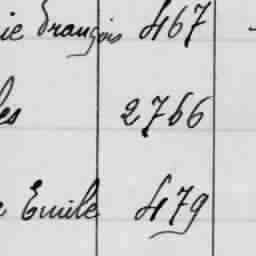 ie François 467
les 2766
e Emile 479